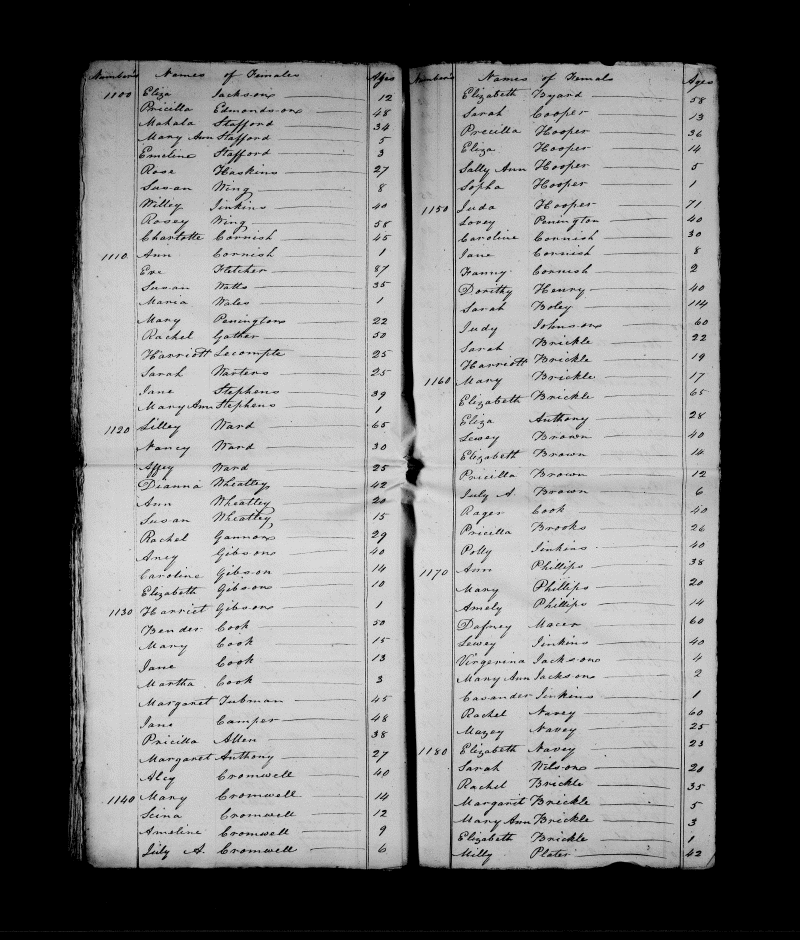 Number's Names of Females Ages
1100 Eliza Jackson 12
Pricilla Edmondson 48
Mahala Stafford 34
Mary Ann Stafford 5
Emeline Stafford 3
Rose Haskins 27
Susan Wing 8
Willey Jinkins 40
Rosey Wing 58
Charlotte Cornish 45
1110 Ann Cornish 1
Eve Fletcher 87
Susan Watts 35
Maria Wales 1
Mary Penington 22
Rachel Gather 50
Harriott Lecompte 25
Sarah Warters 25
Jane Stephens 39
Mary Ann Stephens 1
1120 Lilley Ward 65
Nancy Ward 30
Affey Ward 25
Dianna Wheatley 42
Ann Wheatley 20
Susan Wheatley 15
Rachel Gannon 29
Aney Gibson 40
Caroline Gibson 14
Elizabeth Gibson 10
1130 Harriet Gibson 1
Bender Cook 50
Mary Cook 15
Jane Cook 13
Martha Cook 3
Margaret Tubman 45
Jane Camper 48
Pricilla Allen 38
Margaret Anthony 27
Aley Cromwell 40
1140 Mary Cromwell 14
Scina Cromwell 12
Ameline Cromwell 9
July A. Cromwell 6
Number's Names of Femals Ages
Elizabeth Byard 58
Sarah Cooper 13
Precilla Hooper 36
Eliza Hooper 14
Sally Ann Hooper 5
Sopha Hooper 1
1150 Juda Hooper 71
Lovey Penington 40
Caroline Cornish 30
Jane Cornish 8
Fanny Cornish 2
Dorithy Henry 40
Sarah Boley 114
Judy Johnson 60
Sarah Brickle 22
Harriott Brickle 19
1160 Mary Brickle 17
Elizabeth Brickle 65
Eliza Anthony 28
Lewey Brown 40
Elizabeth Brown 14
Pricilla Brown 12
July A. Brown 6
Rager Cook 40
Pricilla Brooks 26
Polly Jinkins 40
1170 Ann Phillips 38
Mary Phillips 20
Amely Phillips 14
Dafney Macer 60
Lewey Jinkins 40
Virgerina Jackson 4
Mary Ann Jackson 2
Casander Jinkins 1
Rachel Navey 60
Mazey Navey 25
1180 Elizabeth Navey 23
Sarah Wilson 20
Rachel Brickle 35
Margarit Brickle 5
Mary Ann Brickle 3
Elizabeth Brickle 1
Milly Plater 42